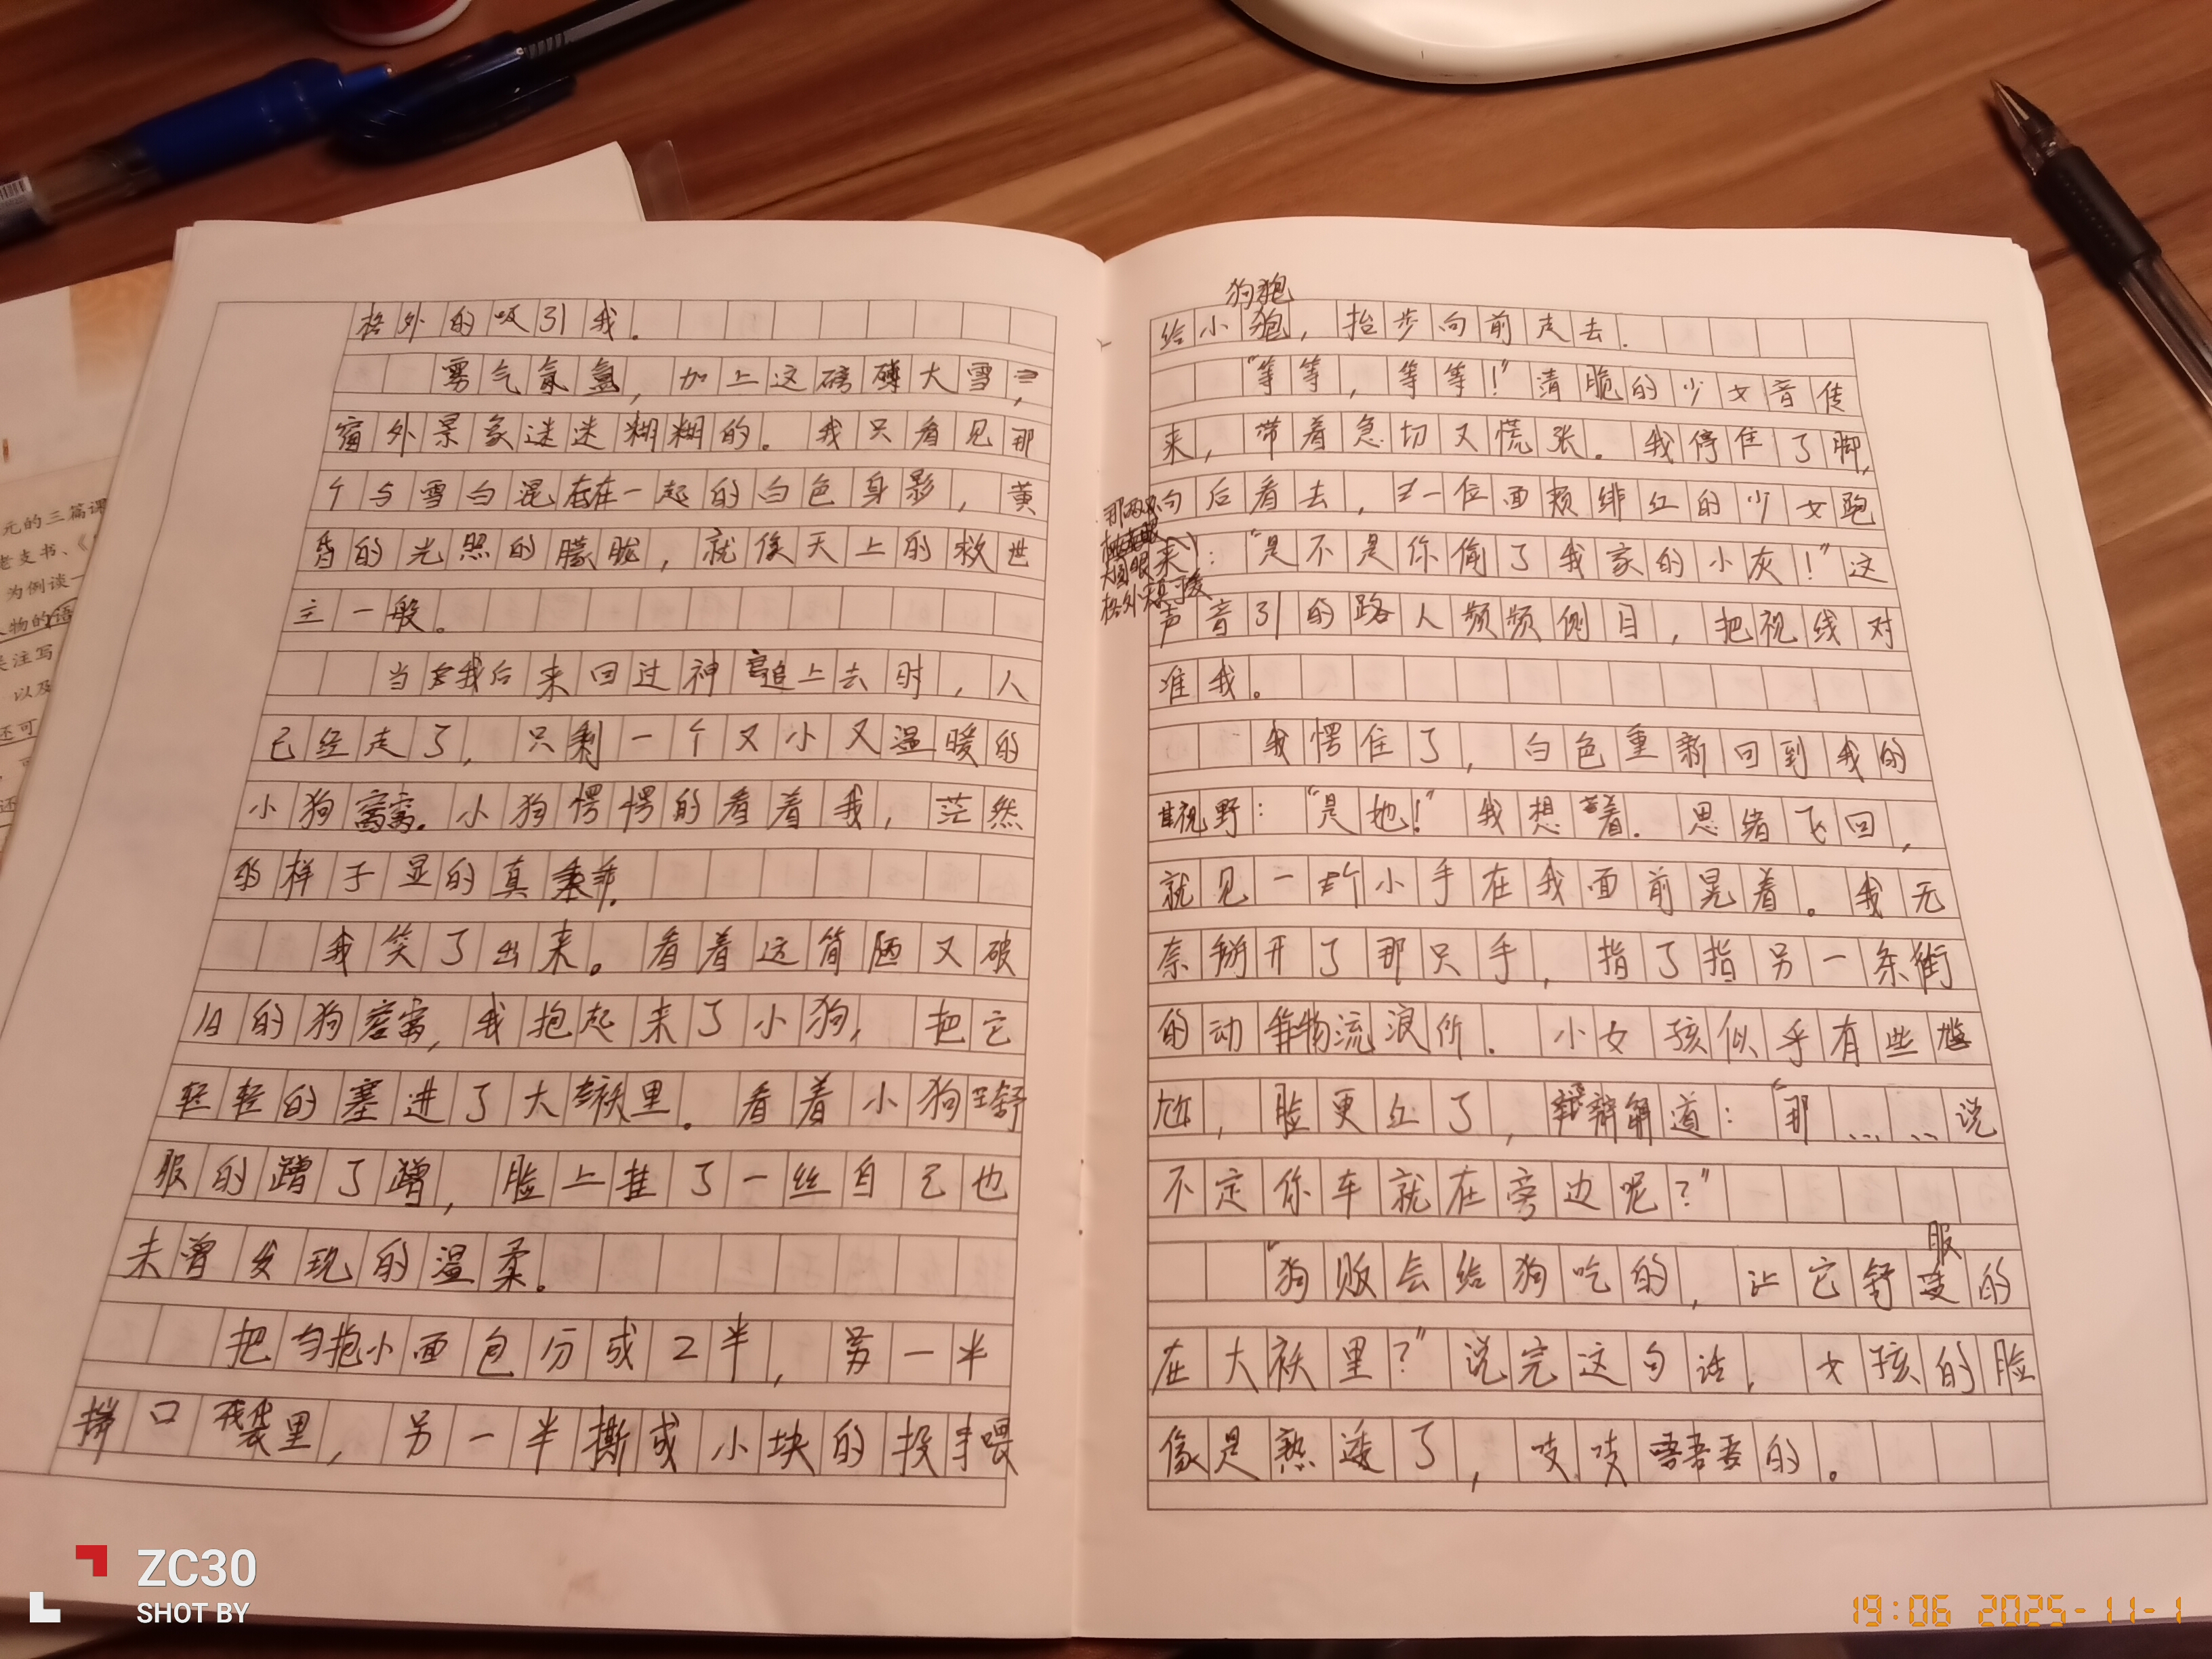 格外的吸引我。
雾气氤氲，加上这磅礴大雪，
窗外景象迷迷糊糊的。我只看见那
个与雪白混在一起的白色身影，黄
昏的光照的朦胧，就像天上的救世
主一般。
当我后来回过神追上去时，人
已经走了，只剩一个又小又温暖的
小狗窝。小狗愣愣的看着我，茫然
的样子显的真乖。
我笑了出来。看着这简陋又破
旧的狗窝，我抱起来了小狗，把它
轻轻的塞进了大袄里。看着小狗舒
服的蹭了蹭，脸上挂了一丝自己也
未曾发现的温柔。
把小面包分成2半，一半
口袋里，另一半撕成小块的投喂
狗狗
给小，抬步向前走去.
“等等，等等！”清脆的少女音传
来，带着急切又慌张。我停住了脚，
向后看去，一位面颊绯红的少女跑
来：“是不是你偷了我家的小灰！”这
声音引的路人频频侧目，把视线对
准我。
那两只
大圆眼
格外
我愣住了，白色重新回到我的
视野：“是她！”我想着.思绪飞回，
就见一个小手在我面前晃着。我无
奈掰开了那只手，指了指另一条街
的动物流浪所.小女孩似乎有些尴
尬，脸更红了，辩解道：“那……说
不定你车就在旁边呢？”
“狗贩会给狗吃的，让它舒服的
在大袄里？”说完这句话，女孩的脸
像是熟透了，吱吱唔唔的。
元的三篇课
老支书、《
为例谈一
人物的语
关注写
以及
还可
ZC30
SHOT BY
19:06 2025-11-1